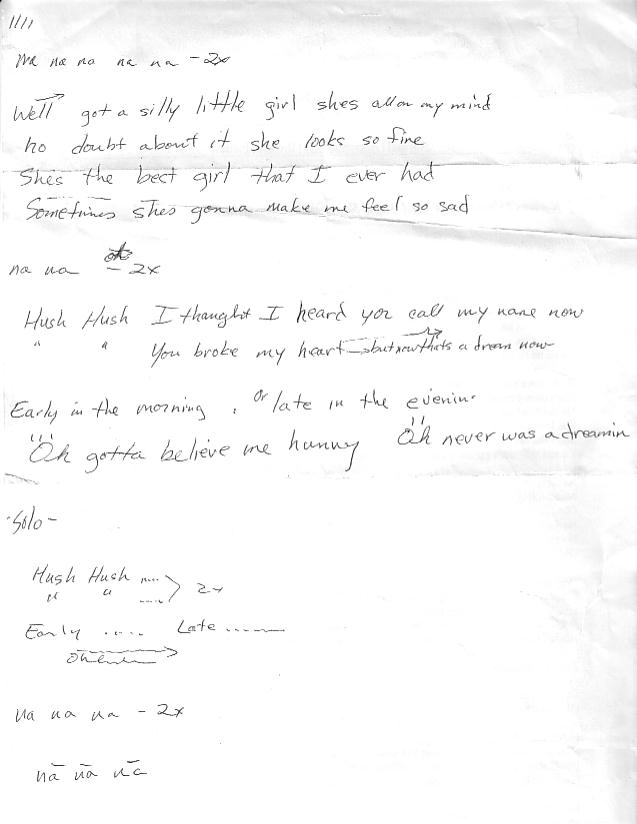 ////
na na na na na - 2x
Well got a silly little girl shes all on my mind
no doubt about it she looks so fine
Shes the best girl that I ever had
Sometimes shes gonna make me feel so sad
na na - 2x
Hush Hush I thaught I heard you call my name now
" " You broke my heart but now thats a dream now
Early in the morning, or late in the evenin.
Oh gotta believe me hunny Oh never was a dreamin
-Solo-
Hush Hush .... > 2x
" " ....
Early ..... Late ........
Oh
na na na - 2x
na na na